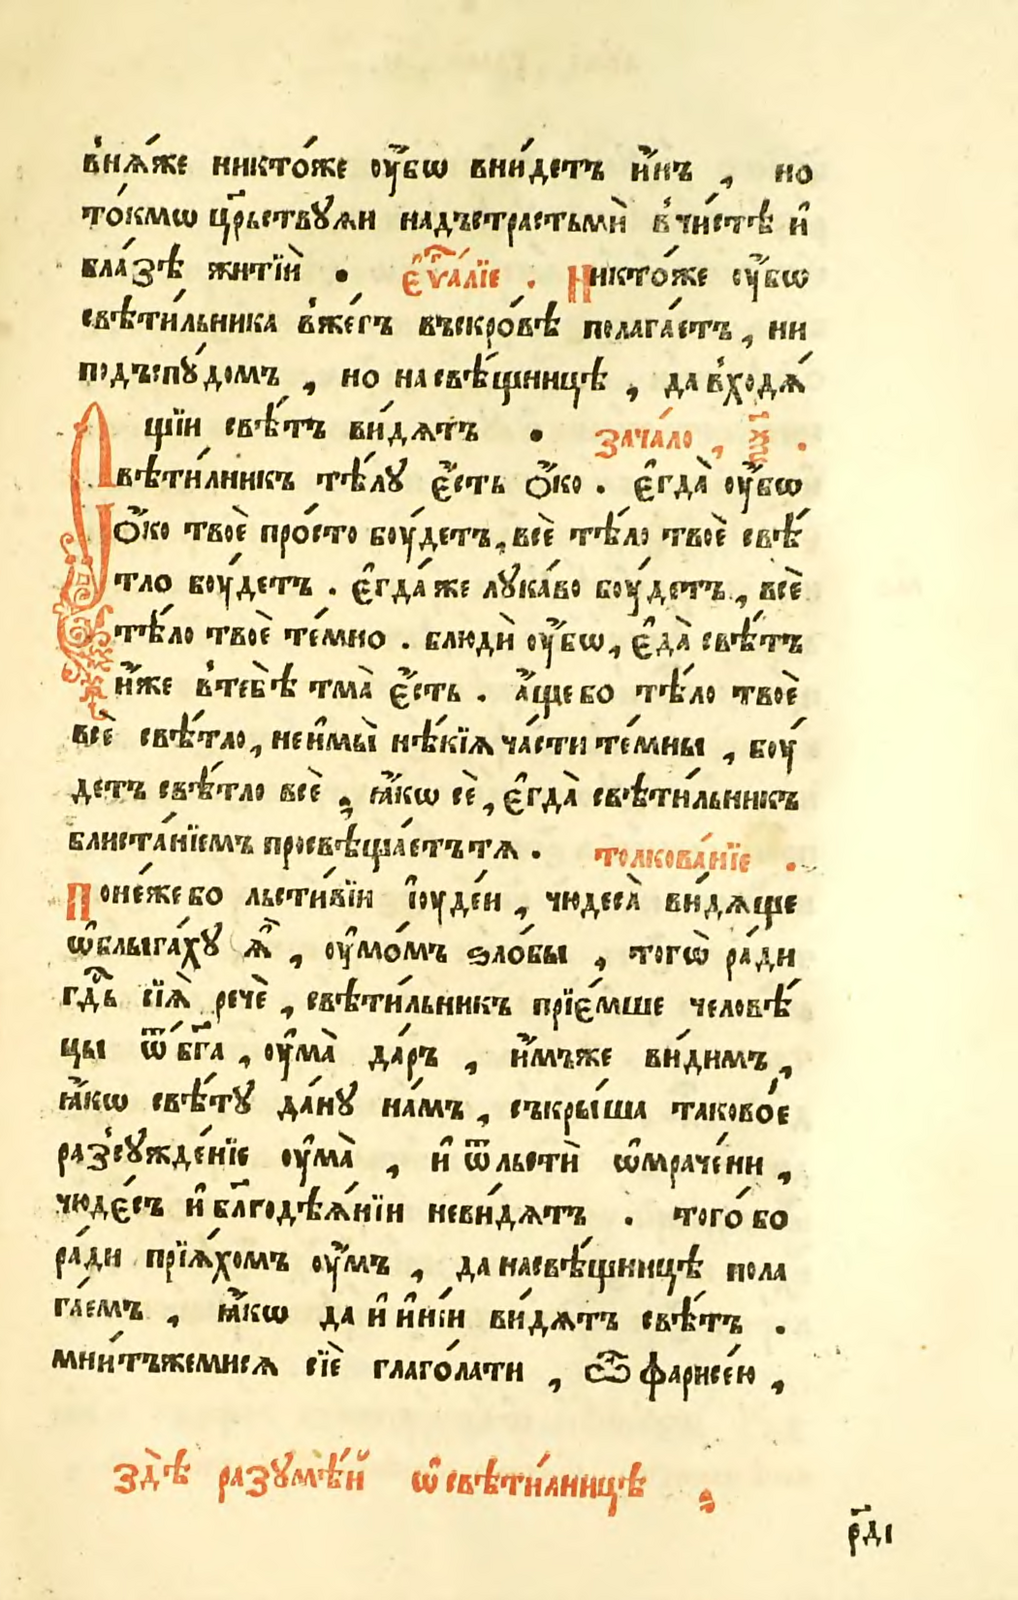 внѧ́же никто́же ᲂу҆́бѡ вни́детъ и҆́нъ , но
то́кмѡ цр҃ьствꙋѧи надъстрастьмѝ в҆чи́стѣ и҆
бла́зѣ житїѝ • є҆ѵⷢ҇а́лїе . Никто́же ᲂу҆́бѡ
свѣти́льника в҆же́гъ въскро́вѣ полага́етъ , ни
подъспꙋ́домъ , но насвѣ́щницѣ , да в҆ходѧ́
щїи свѣ́тъ ви́дѧтъ • зача́ло ,
Свѣти́лникъ тѣ́лꙋ є҆́сть ѻ҆́ко . є҆гда̀ ᲂу҆́бѡ
ѻ҆́ко твоѐ про́сто боу́детъ , всѐ тѣ́ло твоѐ свѣ́
тло боу́детъ . є҆гда́ же лꙋка́во боу́детъ , всѐ
тѣ́ло твоѐ те́мно . блюдѝ ᲂу҆́бѡ , є҆да̀ свѣ́тъ
и҆́же в҆тебѣ̀ тма̀ є҆́сть . а҆́ще бо тѣ́ло твоѐ
всѐ свѣ́тло , неи҆мы̀ нѣ́кїѧ ча́сти те́мны , боу́
детъ свѣ́тло всѐ , ꙗ҆́кѡ сѐ , є҆гда̀ свѣти́льникъ
блиста́нїемъ просвѣща́етътѧ . толкова́нїе .
Поне́же бо льсти́вїи і҆оуде́и , чюдеса̀ ви́дѧще
ѡ҆блыга́хꙋ ѧ҆̀ , ᲂу҆мо́мъ ѕло́бы , тогѡ̀ ра́ди
гдⷭ҇ь сїѧ̀ речѐ , свѣти́льникъ прїє́мше человѣ́
цы ѿ бг҃а , ᲂу҆ма̀ да́ръ , и҆́мъже ви́димъ ,
ꙗ҆́кѡ свѣ́тꙋ да́нꙋ на́мъ , съкры́ша таково́е
разсꙋжде́нїе ᲂу҆ма̀ , и҆ ѿльстѝ ѡ҆мраче́ни ,
чюдє́съ и҆ бл҃годѣѧ́нїи неви́дѧтъ . того́ бо
ра́ди прїѧ́хомъ ᲂу҆́мъ , да насвѣ́щницѣ пола
га́емъ , ꙗ҆́кѡ да и҆ и҆ні́и ви́дѧтъ свѣ́тъ .
мни́тъжемисѧ сїѐ глаго́лати , ѽ фарисе́ю ,
здѣ̀ разꙋмѣ́й ѡ҆свѣти́лницѣ
рд҃і